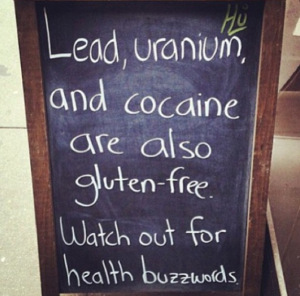 Hü
Lead, uranium,
and cocaine
are also
gluten-free.
Watch out for
health buzzwords.